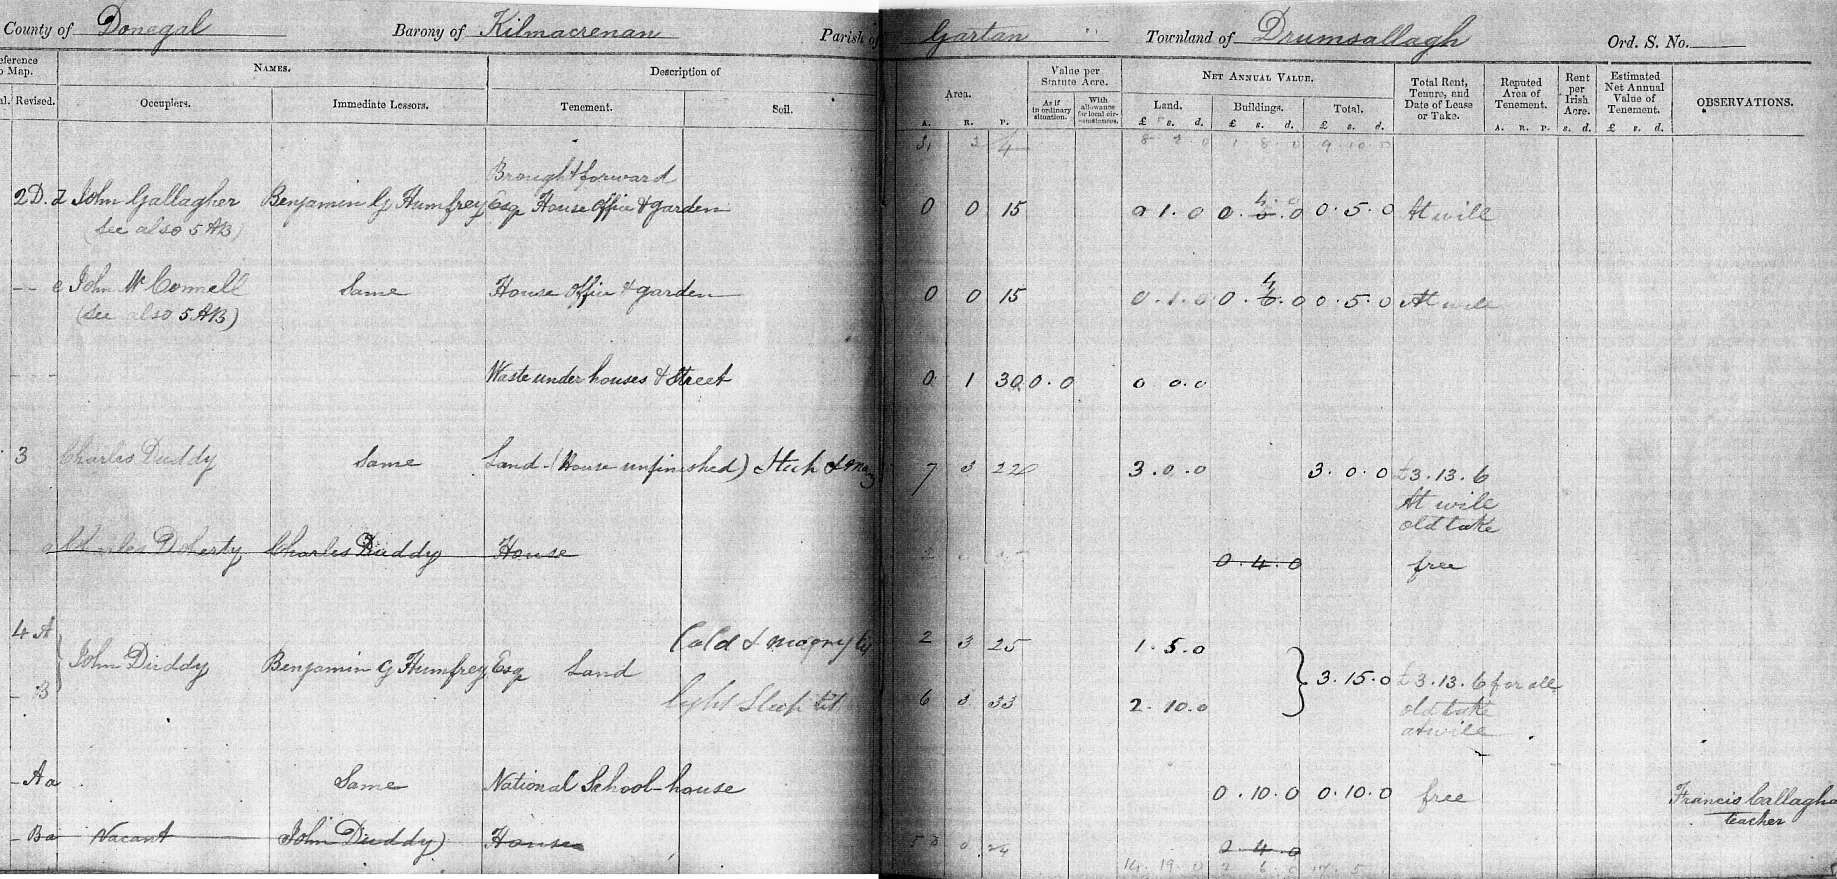 County of Donegal Barony of Kilmacrenan Parish of Gartan Townland of Drumsallagh Ord. S. No.
eference o Map. NAMES. Description of Area. Value per Statute Acre. NET ANNUAL VALUE. Total Rent, Tenure, and Date of Lease or Take. Reputed Area of Tenement. Rent per Irish Acre. Estimated Net Annual Value of Tenement. OBSERVATIONS.
al. Revised. Occupiers. Immediate Lessors. Tenement. Soil. As if in ordinary situation. With allowance for local cir-cumstances. Land. Buildings. Total.
A. R. P. £ s. d. £ s. d. £ s. d. A. R. P. s. d. £ s. d.
3 4 8 2 0 1 8 0 9 10 0
Brought forward
2 D. John Gallagher Benjamin G Humfrey Esq House office & garden 0 0 15 0 1 . 0 0 . 4 . 0 0 . 5 . 0 At will
(See also 5 AB)
-- c John McConnell Same House office & garden 0 0 15 0 . 1 . 0 0 . 4 6 . 0 0 . 5 . 0 At will
(See also 5 AB)
Waste under houses & Street 0 1 30 0 . 0 0 0 . 0
3 Charles Duddy Same Land - (House unfinished) 7 3 22 3 . 0 . 0 3 . 0 . 0 £3 . 13 . 6
At will
old take
a Charles Doherty Charles Duddy House 0 . 4 . 0 free
4 A Cold & 2 3 25 1 . 5 . 0
John Duddy Benjamin G Humfrey Esq Land 3 . 15 . 0 £3 . 13 . 6 for all
- B light Steep 6 3 33 2 . 10 . 0 old take
at will
- A a Same National School-house 0 . 10 . 0 0 . 10 . 0 free Francis Callagha
teacher
- B a Vacant John Duddy House 0 4 . 0
14 . 19 . 0 2 6 . 0 17 . 5